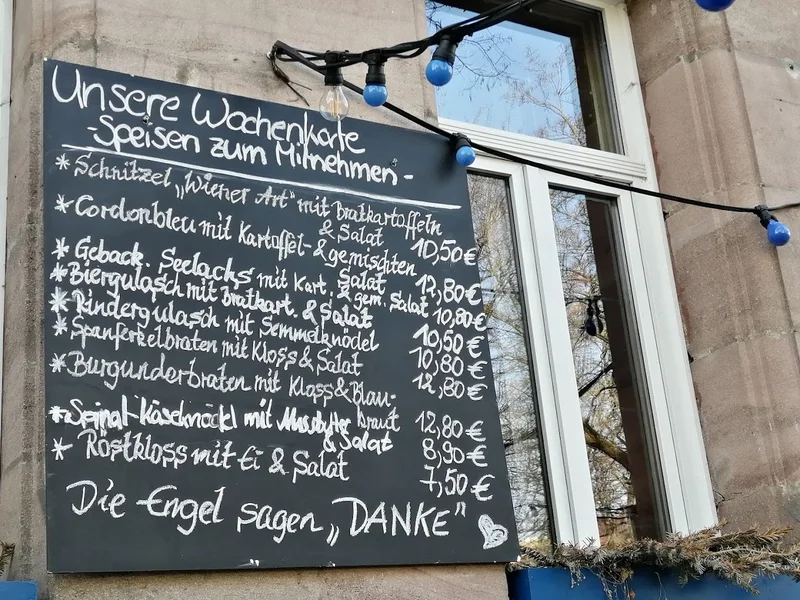 Unsere Wochenkarte
-Speisen zum Mitnehmen-
* Schnitzel „Wiener Art" mit Bratkartoffeln
& Salat 10,50€
* Cordonbleu mit Kartoffel- & gemischten
Salat 12,80€
* Geback. Seelachs mit Kart. & gem. Salat 10,80€
* Biergulasch mit Bratkart. & Salat 10,50€
* Rindergulasch mit Semmelknödel 10,80€
* Spanferkelbraten mit Kloss & Salat 12,80€
* Burgunderbraten mit Kloss & Blau-
kraut 12,80€
* Spinat-Käseknödl mit
& Salat 8,90€
* Röstkloss mit Ei & Salat 7,50€
Die Engel sagen „DANKE"